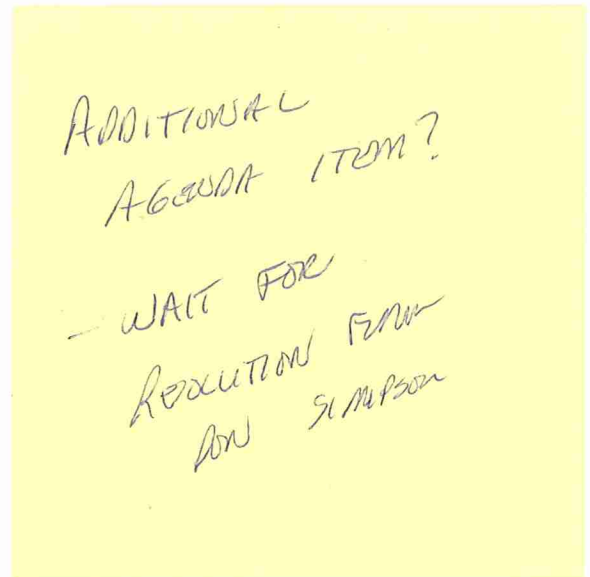 ADDITIONAL
AGENDA ITEM?
- WAIT FOR
RESOLUTION FROM
RON SIMPSON